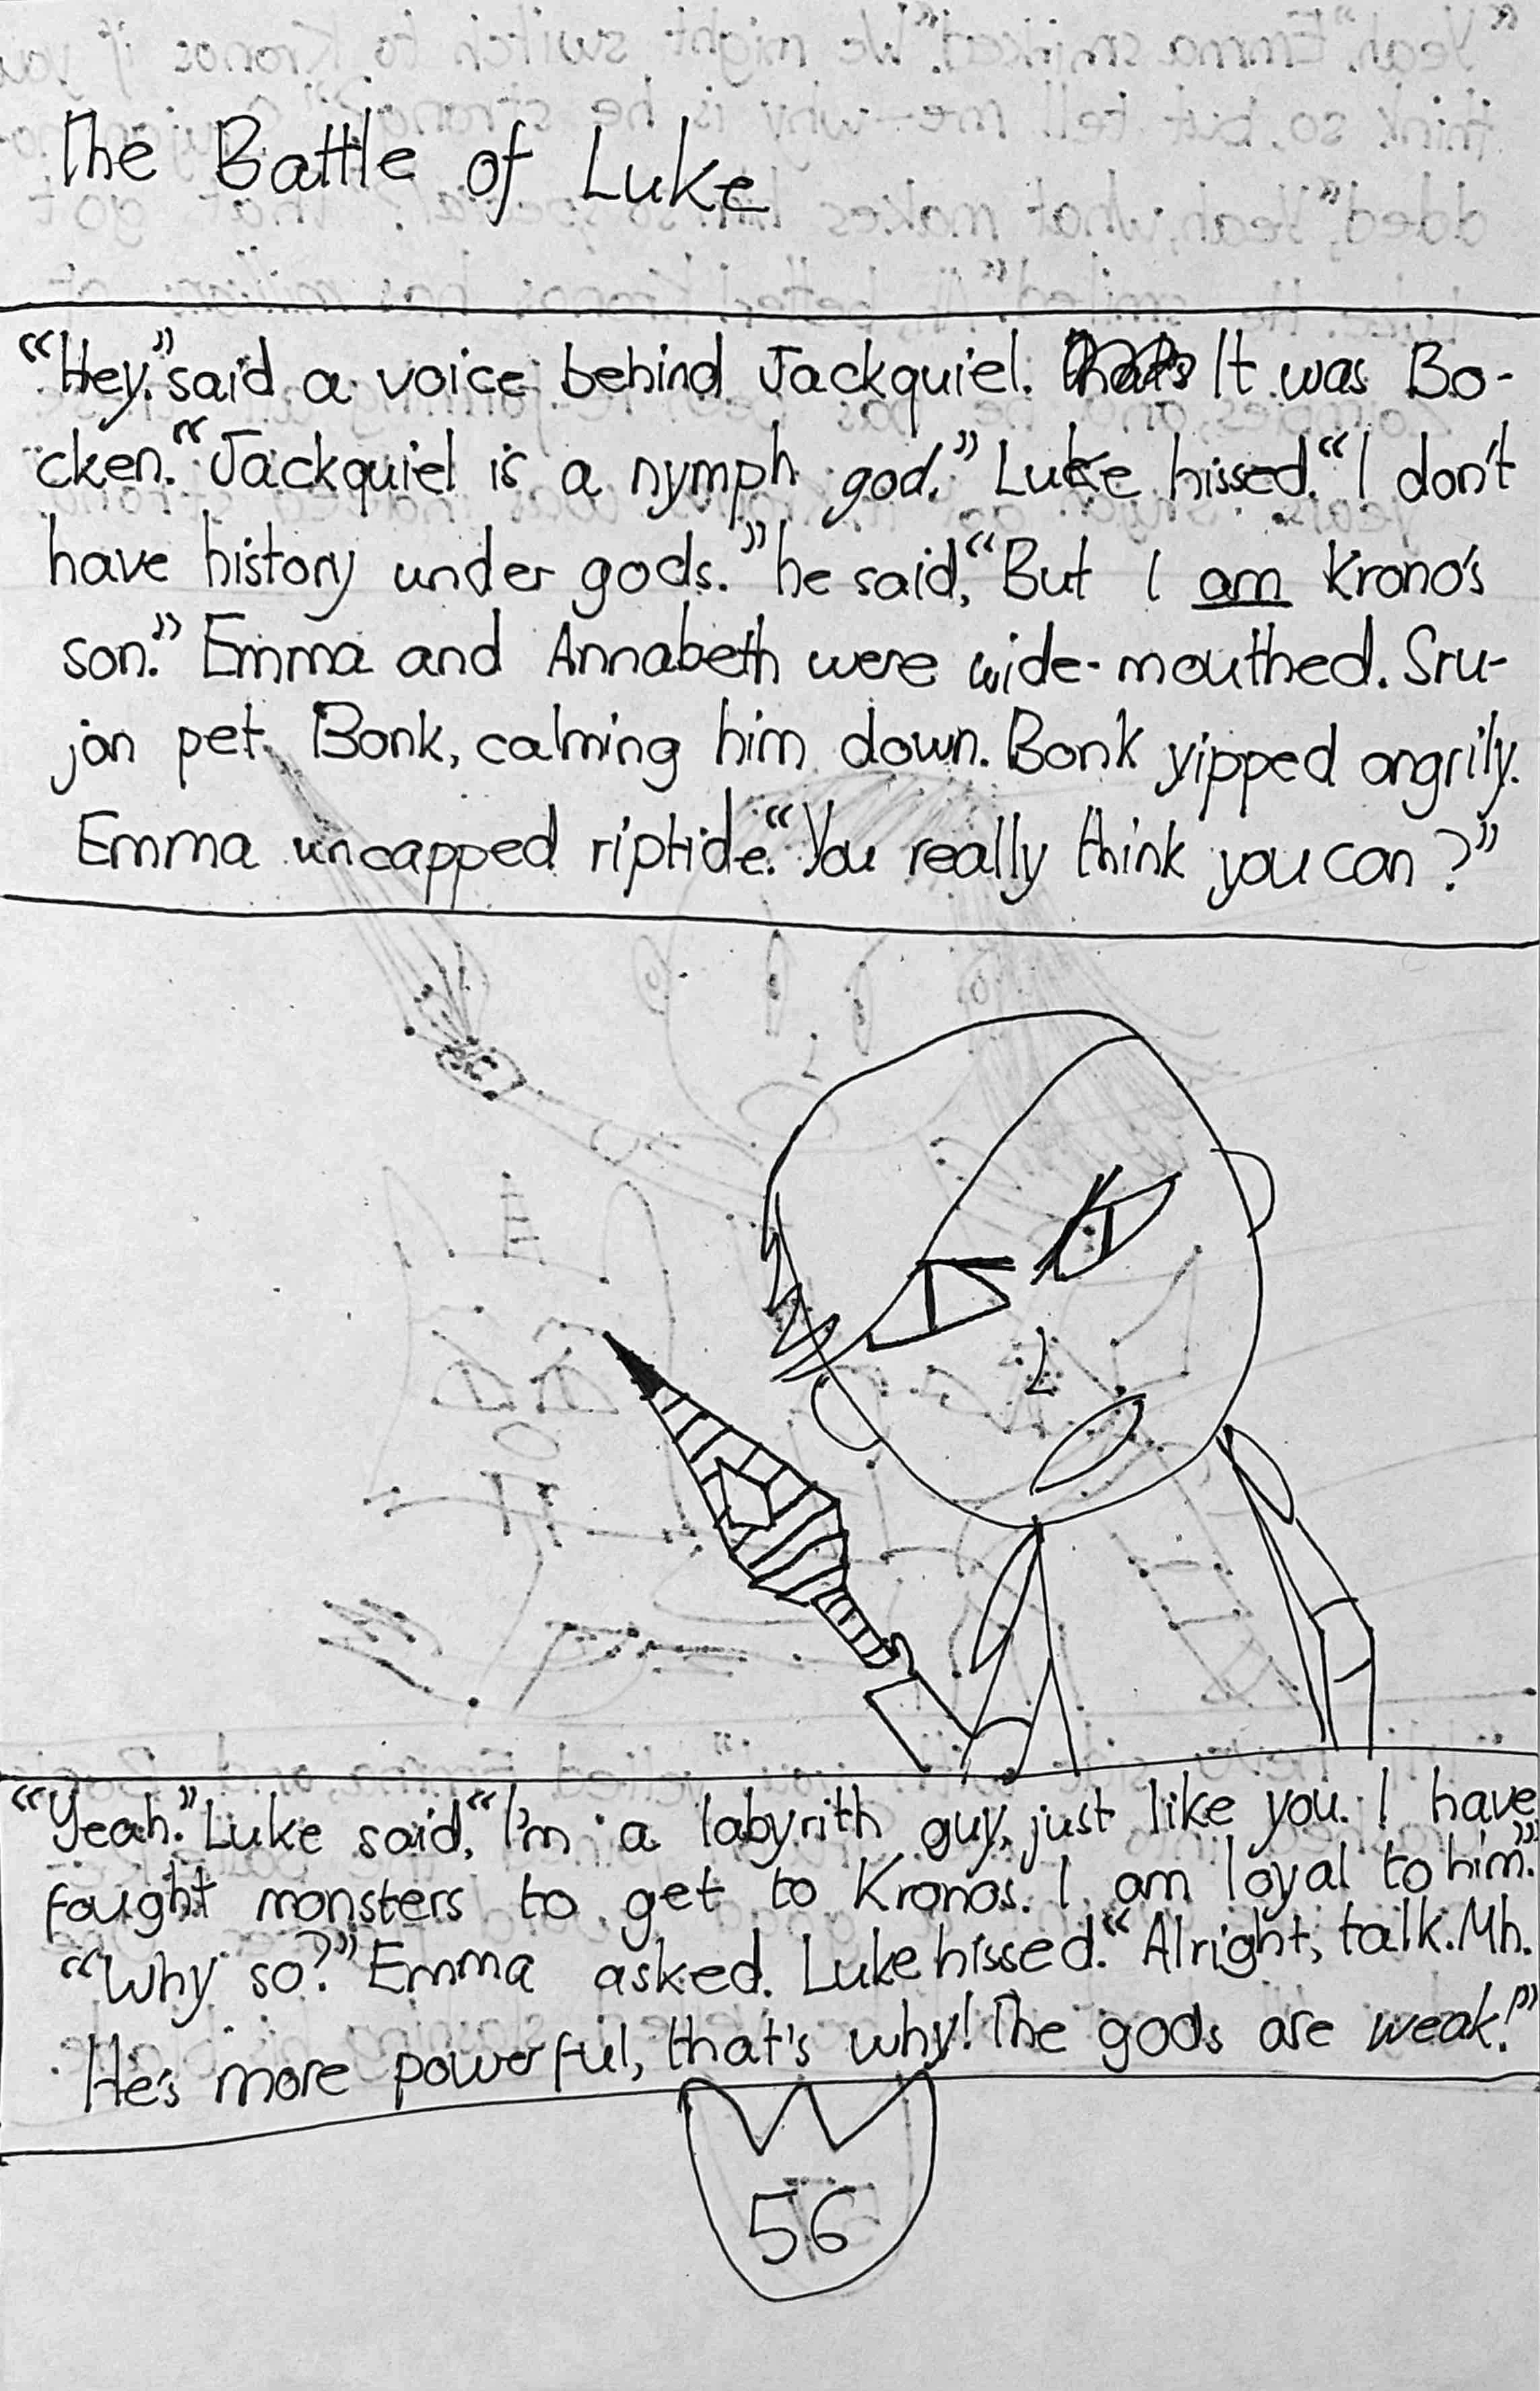 The Battle of Luke
“Hey.” said a voice behind Jackquiel. It was Bo-
cken. “Jackquiel is a nymph god.” Luke hissed. “I don't
have history under gods.” he said, “But I am Krono's
son.” Emma and Annabeth were wide-mouthed. Sru-
jan pet Bonk, calming him down. Bonk yipped angrily.
Emma uncapped riptide. “You really think you can?”
“Yeah.” Luke said. “I'm a labyrith guy, just like you. I have
fought monsters to get to Kronos. I am loyal to him.”
“Why so?” Emma asked. Luke hissed. “Alright, talk. Mh.
He's more powerful, that's why! The gods are weak!”
56